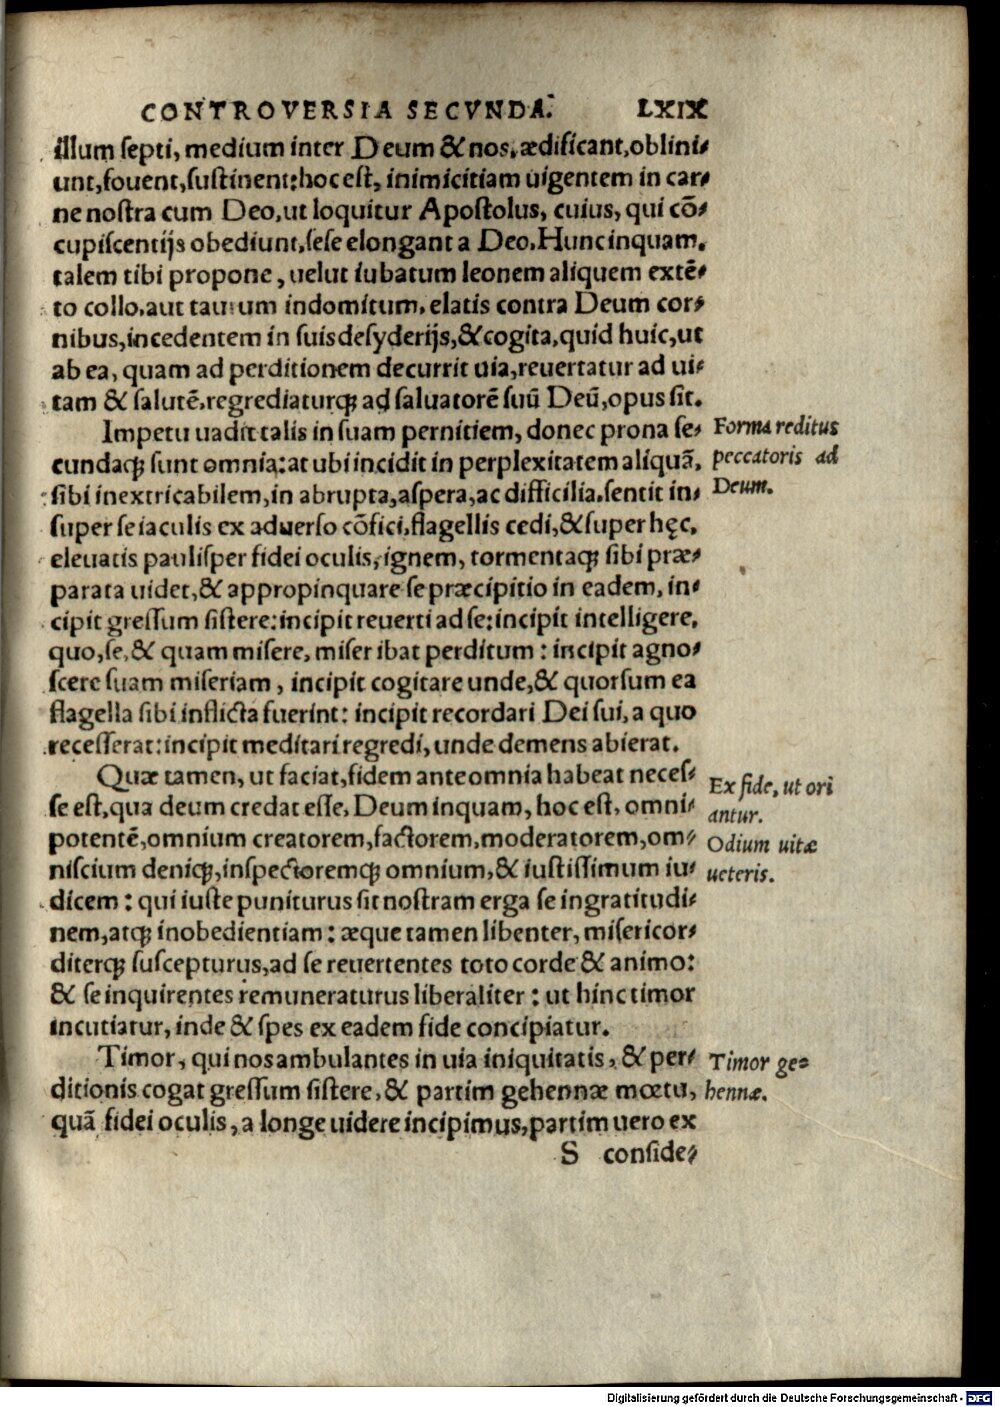 CONTROVERSIA SECVNDA. LXIX
illum ſepti, medium inter Deum & nos, ædificant, oblini⸗
unt, fouent, ſuſtinent: hoc eſt, inimicitiam uigentem in car⸗
ne noſtra cum Deo, ut loquitur Apoſtolus, cuius, qui cō⸗
cupiſcentijs obediunt, ſeſe elongant a Deo. Hunc inquam,
talem tibi propone, uelut iubatum leonem aliquem extē⸗
to collo, aut taurum indomitum, elatis contra Deum cor⸗
nibus, incedentem in ſuis deſyderijs, & cogita, quid huic, ut
ab ea, quam ad perditionem decurrit uia, reuertatur ad ui⸗
tam & ſalutē, regrediaturq́; ad ſaluatorē ſuū Deū, opus ſit.
Impetu uadit talis in ſuam pernitiem, donec prona ſe⸗
cundaq́; ſunt omnia: at ubi incidit in perplexitatem aliquā,
ſibi inextricabilem, in abrupta, aſpera, ac difficilia, ſentit in⸗
ſuper ſe iaculis ex aduerſo cōfici, flagellis cedi, & ſuper hęc,
eleuatis pauliſper fidei oculis, ignem, tormentaq́; ſibi præ⸗
parata uidet, & appropinquare ſe præcipitio in eadem, in⸗
cipit greſſum ſiſtere: incipit reuerti ad ſe: incipit intelligere,
quo, ſe, & quam miſere, miſer ibat perditum: incipit agno⸗
ſcere ſuam miſeriam, incipit cogitare unde, & quorſum ea
flagella ſibi inflicta fuerint: incipit recordari Dei ſui, a quo
receſſerat: incipit meditari regredi, unde demens abierat.
Quæ tamen, ut faciat, fidem ante omnia habeat neceſ⸗
ſe eſt, qua deum credat eſſe, Deum inquam, hoc eſt, omni⸗
potentē, omnium creatorem, factorem, moderatorem, om⸗
niſcium deniq́;, inſpectoremq́; omnium, & iuſtiſſimum iu⸗
dicem: qui iuſte puniturus ſit noſtram erga ſe ingratitudi⸗
nem, atq́; inobedientiam: æque tamen libenter, miſericor⸗
diterq́; ſuſcepturus, ad ſe reuertentes toto corde & animo:
& ſe inquirentes remuneraturus liberaliter: ut hinc timor
incutiatur, inde & ſpes ex eadem fide concipiatur.
Timor, qui nos ambulantes in uia iniquitatis, & per⸗
ditionis cogat greſſum ſiſtere, & partim gehennæ mœtu,
quā fidei oculis, a longe uidere incipimus, partim uero ex
S conſide⸗
Forma reditus
peccatoris ad
Deum.
Ex fide, ut ori
antur.
Odium uitæ
ueteris.
Timor ge⸗
hennæ.
Digitalisierung gefördert durch die Deutsche Forschungsgemeinschaft - DFG